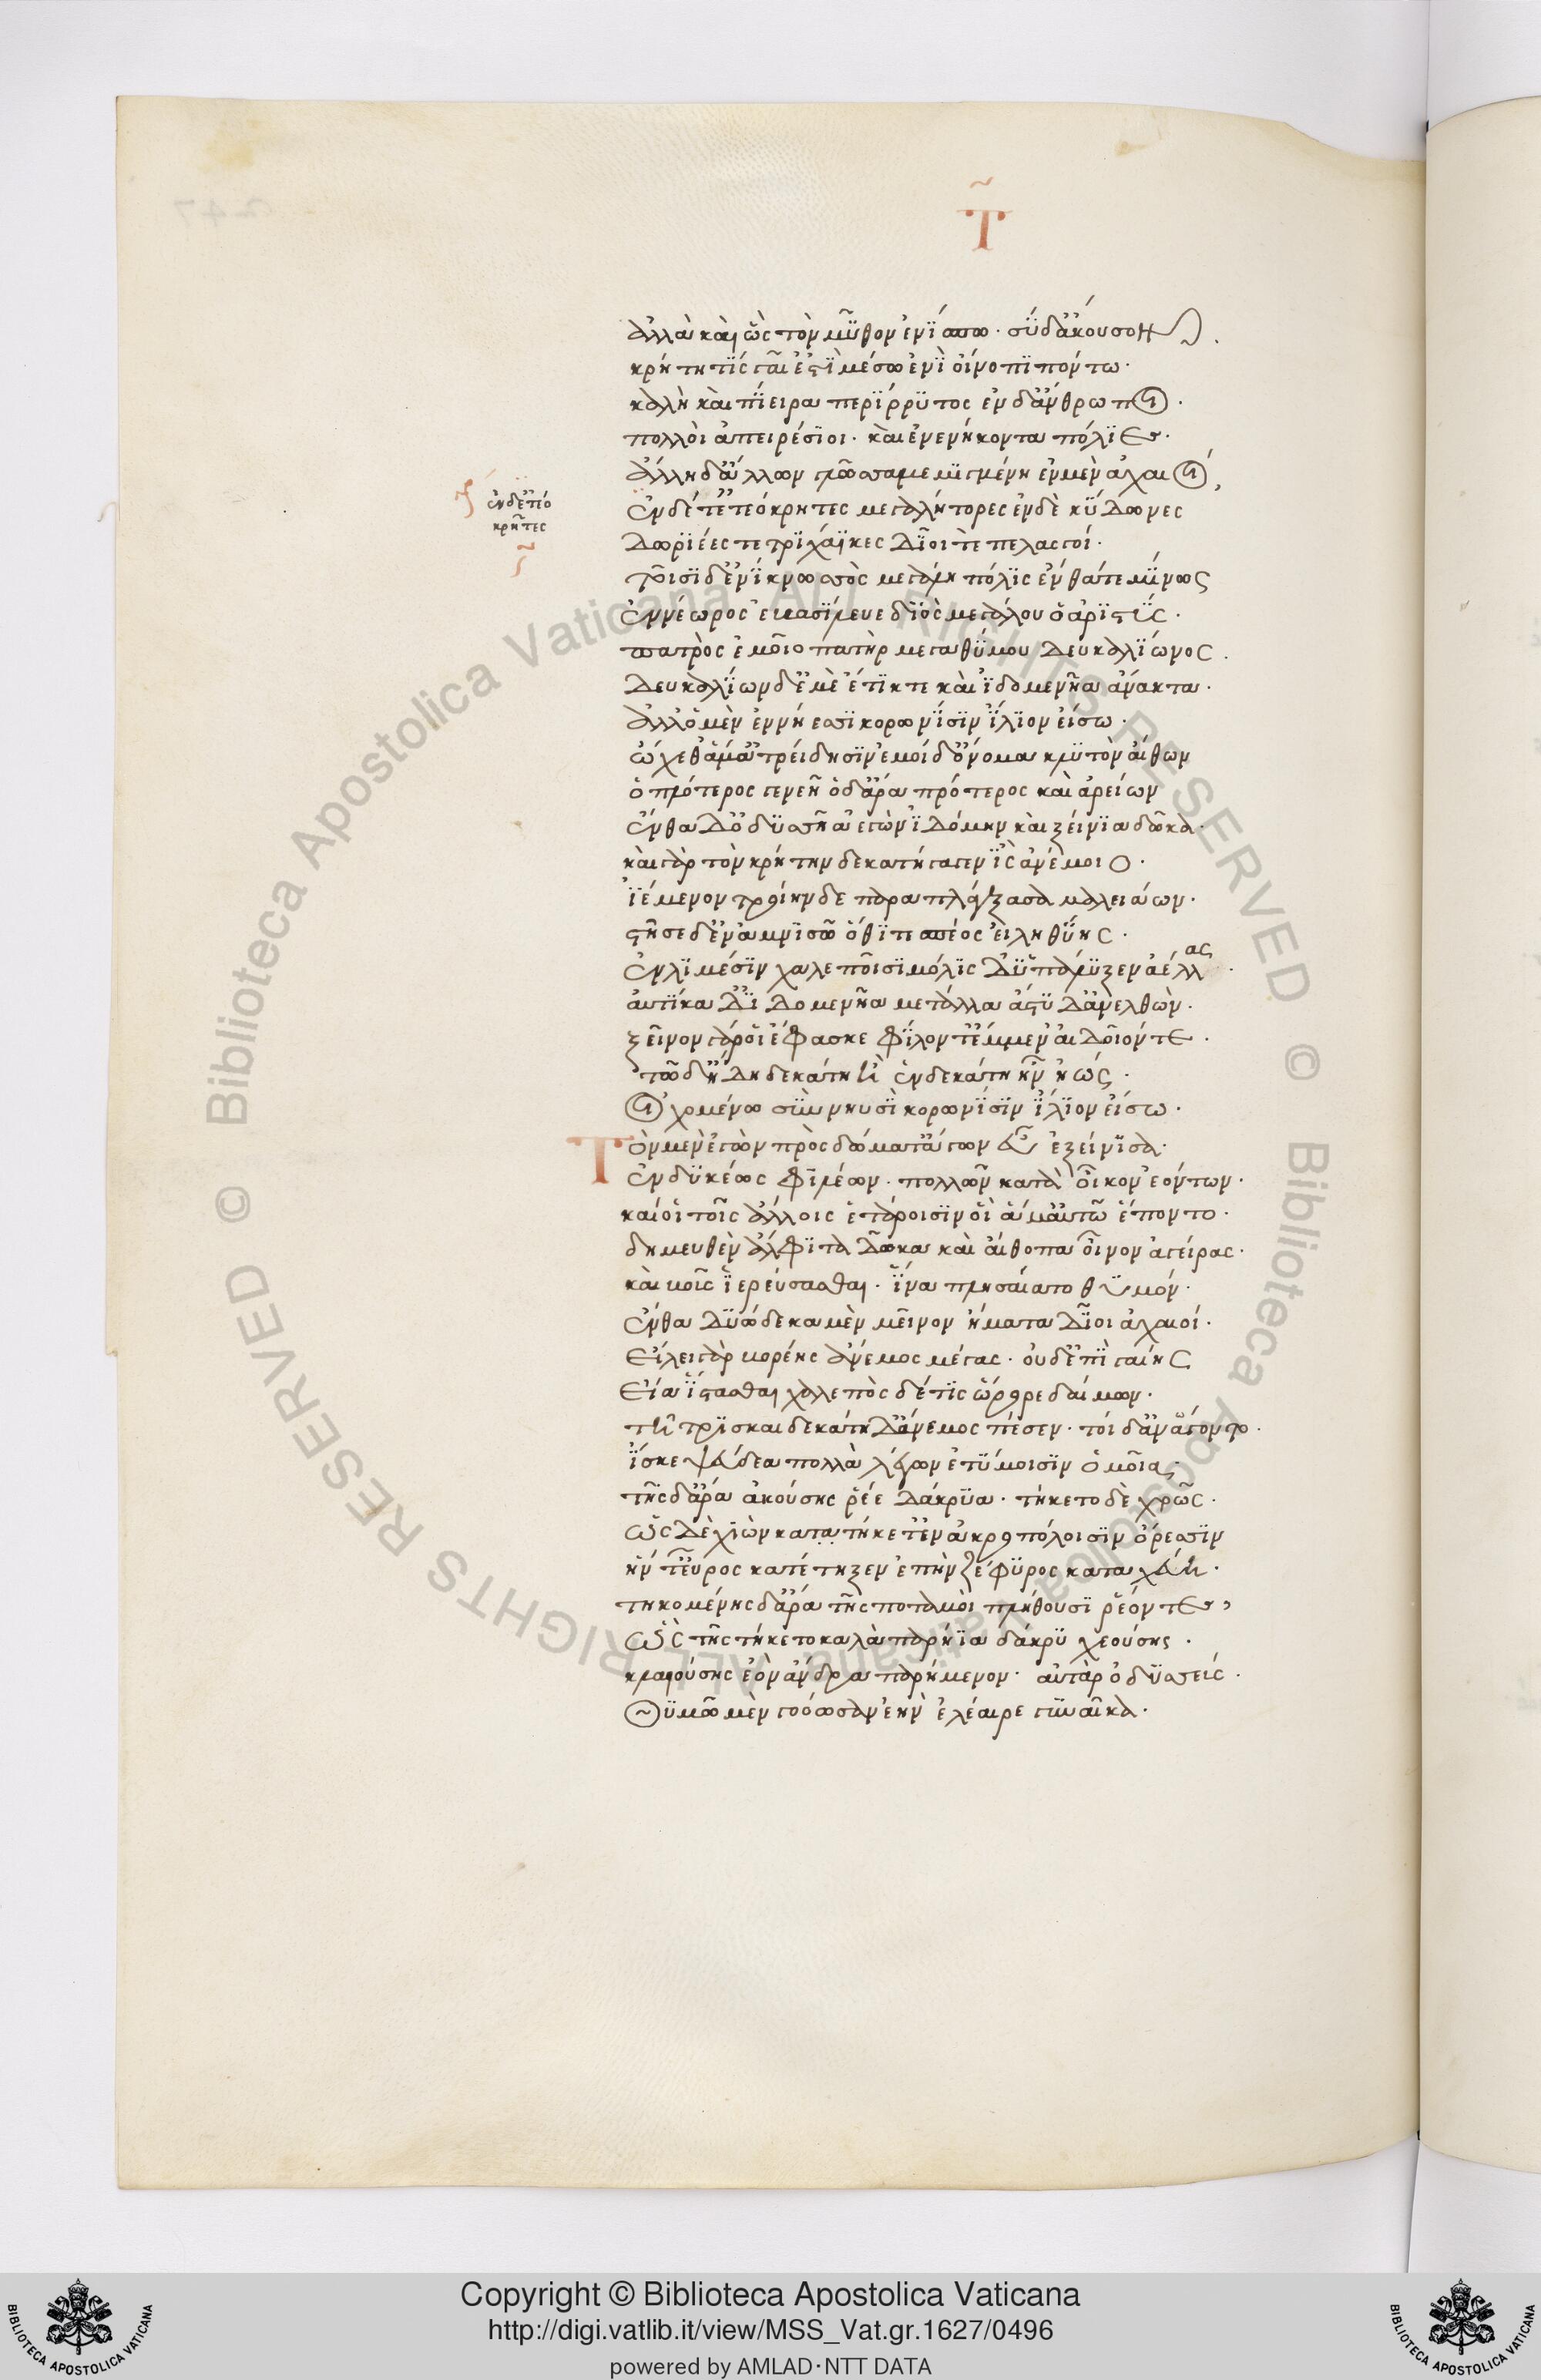 Τ
ἀλλὰ καὶ ὣς τὸν μῦθον ἐνίσπω· σὺ δ' ἄκουσον
κρήτη τίς γαῖ' ἐστὶ μέσω ἐνὶ οἴνοπι πόντω·
καλὴ καὶ πίειρα περίρρυτος ἐν δ' ἄνθρωποι·
πολλοὶ ἀπειρέσιοι· καὶ ἐνενήκοντα πόλιες·
ἄλλη δ' ἄλλων γλῶσσα μεμιγμένη ἐν μὲν ἀχαιοί,
ἐν δ' ἐτεόκρητες μεγαλήτορες ἐν δὲ κύδωνες
ἐν δ' ἐτεό
κρητες
δωριέες τε τριχάϊκες δῖοί τε πελασγοί·
τοῖσι δ' ἐνὶ κνωσὸς μεγάλη πόλις ἔνθά τε μίνως
ἐννέωρος βασίλευε διὸς μεγάλου ὀαριστής·
πατρὸς ἐμοῖο πατὴρ μεγαθύμου δευκαλίωνος.
δευκαλίων δ' ἐμὲ ἔτικτε καὶ ἰδομενῆα ἄνακτα·
ἀλλ' ὁ μὲν ἐν νήεσσι κορωνίσιν ἴλιον εἴσω·
ὤχεθ' ἅμ' ἀτρείδησιν ἐμοὶ δ' ὄνομα κλυτὸν αἴθων
ὁπλότερος γενεῆ ὁ δ' ἄρα πρότερος καὶ ἀρείων
ἔνθ' ὀδυσσῆα ἐγὼν ἰδόμην καὶ ξείνια δῶκα·
καὶ γὰρ τὸν κρήτην δε κατήγαγεν ἲς ἀνέμοιο·
ἱέμενον τροίην δε παραπλάγξασα μαλειάων·
στῆσε δ' ἐν ἀμνισῶ ὅθι τε σπέος εἰληθύης·
ἐν λιμέσιν χαλεποῖσι μόλις δ' ὑπάλυξεν ἀέλλας·
αὐτίκα δ' ἰδομενῆα μετάλλα ἄστυ δ' ἀνελθών·
ξεῖνον γάρ οἱ ἔφασκε φίλον τ' ἔμμεν αἰδοῖόν τε·
τῶ δ' ἤδη δεκάτη ἢ ἑνδεκάτη ἦν ἠώς·
οἰχομένω σὺν νηυσὶ κορωνίσιν ἴλιον εἴσω·
τὸν μὲν ἐγὼν πρὸς δώματ' ἄγων εὖ ἐξείνισα·
ἐνδυκέως φιλέων· πολλῶν κατὰ οἶκον ἐόντων·
καί οἱ τοῖς ἄλλοις ἑτάροισιν οἳ ἅμ' αὐτῶ ἕποντο·
δημευθὲν ἄλφιτα δῶκα καὶ αἴθοπα οἶνον ἀγείρας·
καὶ βοῦς ἱερεύσασθαι· ἵνα πλησαίατο θυμόν·
ἔνθα δυώδεκα μὲν μεῖνον ἤματα δῖοι ἀχαιοί·
εἴλει γὰρ βορέης ἄνεμος μέγας· οὐδ' ἐπὶ γαίης
εἴα ἵστασθαι χαλεπὸς δέ τις ὤρορε δαίμων·
τῆ τρισκαιδεκάτη δ' ἄνεμος πέσεν· τοὶ δ' ἀνάγοντο·
ἴσκε ψεύδεα πολλὰ λέγων ἐτύμοισιν ὁμοῖα·
τῆς δ' ἄρα ἀκούσης ῥέε δάκρυα· τήκετο δὲ χρώς·
ὡς δὲ χιὼν κατατήκετ' ἐν ἀκροπόλοισιν ὄρεσσιν
ἥν τ' εὖρος κατέτηξεν ἐπὴν ζέφυρος καταχεύη·
τηκομένης δ' ἄρα τῆς ποταμοὶ πλήθουσι ῥέοντες,
ὣς τῆς τήκετο καλὰ παρήϊα δάκρυ χεούσης·
κλαιούσης ἑὸν ἄνδρα παρήμενον· αὐτὰρ ὀδυσσεύς·
θυμῶ μὲν γοόωσαν ἑὴν ἐλέαιρε γυναῖκα·
Copyright © Biblioteca Apostolica Vaticana
http://digi.vatlib.it/view/MSS_Vat.gr.1627/0496
powered by AMLAD·NTT DATA